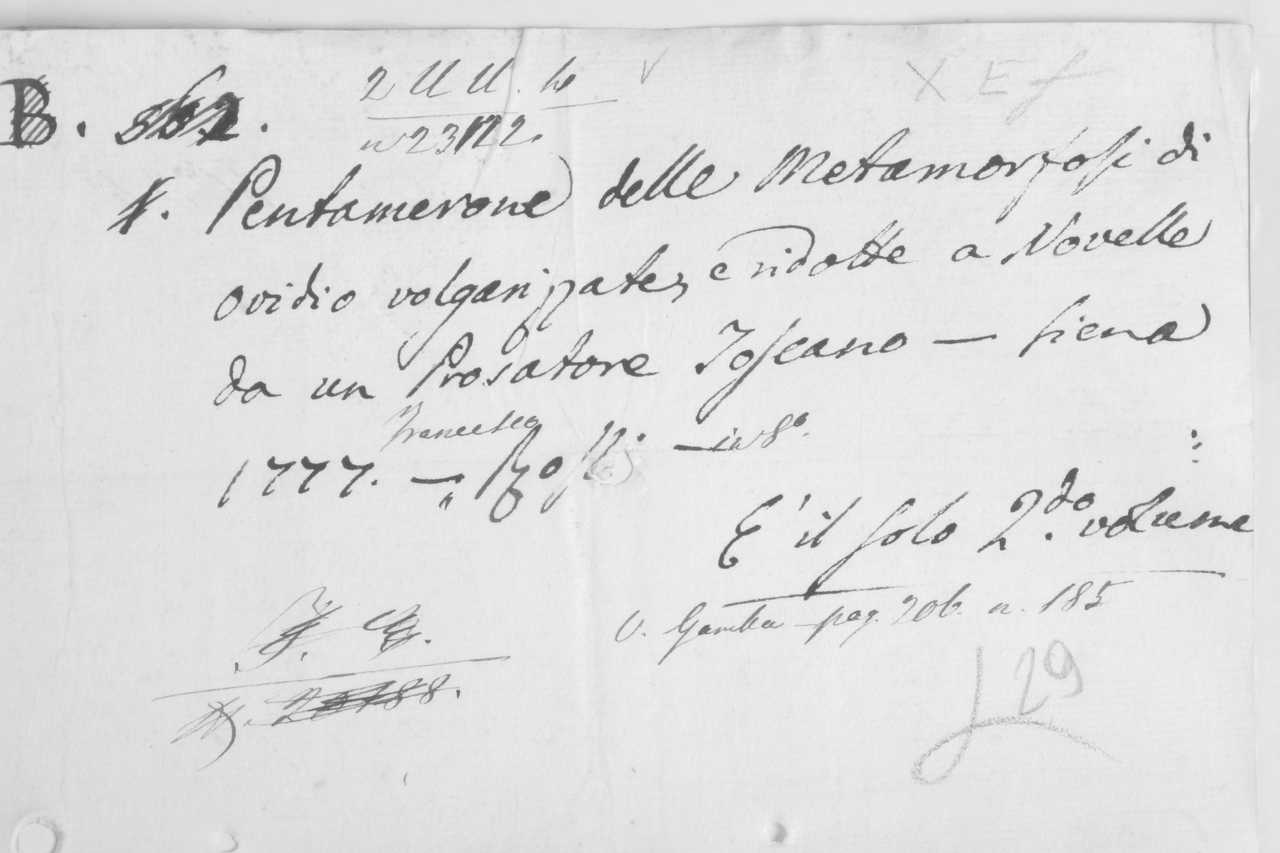 B.
2 UU. 
23122.
X E f
Pentamerone delle Metamorfosi di
ovidio volgarizzate, e ridotte a Novelle
da un Prosatore Toscano — Siena
Francesco
1777. — Rossi — in 8°.
E' il solo 2.do volume
V. Gamba pag. 206. n. 185
L 29